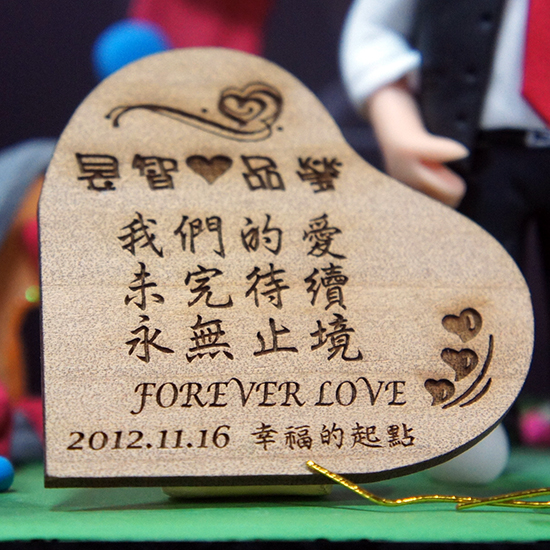 昱智♥品瑩
我們的愛
未完待續
永無止境
FOREVER LOVE
2012.11.16 幸福的起點